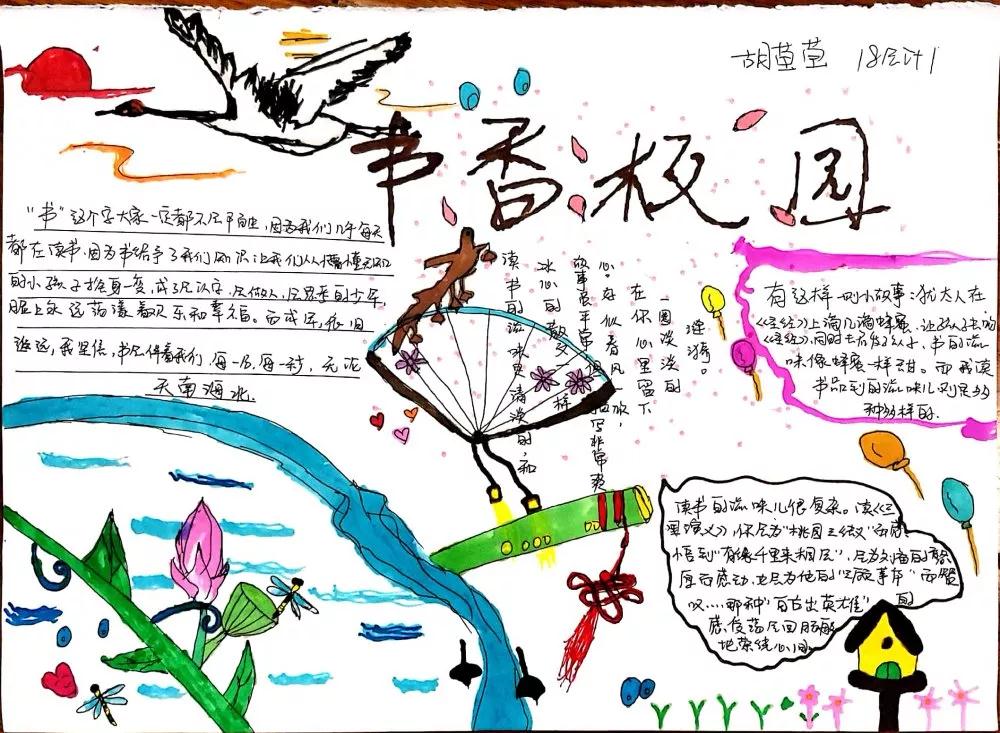 胡莹莹 18会计1
书香校园
"书"这个字大家一定都不会陌生,因为我们几乎每天
都在读书,因为书给予了我们知识,让我们从懵懂无知
的小孩子摇身一变,成了会认字、会做人、会思考的少年,
脸上永远荡漾着欢乐和幸福。
遥远,我坚信,书会伴着我们,每一分,每一秒,无论
天南海北.
读书的滋味更清淡的,和
冰心的散文一样
故事虽平常
心。好似春风一吹,
在你心里留下
一圈淡淡的
涟漪。
有这样一则小故事:犹太人在
《圣经》上滴几滴蜂蜜,让孩子去
《圣经》,
味像蜂蜜一样甜。而我读
书品到的滋味儿则是多
种多样的.
读书的滋味儿很复杂。读《三
国演义》,你会为"桃园三结义"而感
悟到"有缘千里来相会",会为刘备的
厚而感动,也会为他的
叹....那种"自古出英雄"的
感役荡会回肠般
地萦绕心间.